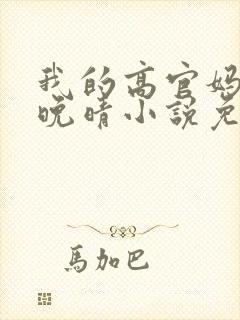 我的高官妈
晚晴小説免
馬加巴